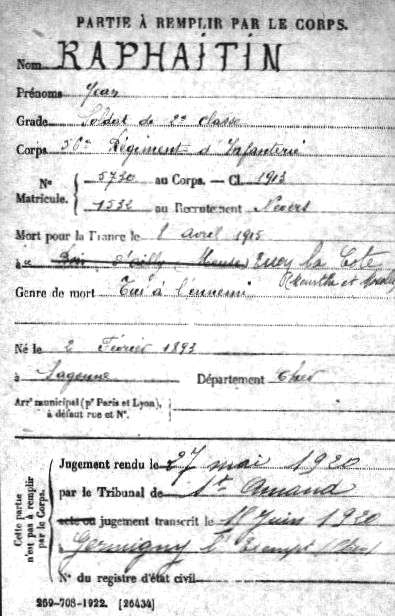 PARTIE À REMPLIR PAR LE CORPS.
Nom RAPHAITIN
Prénoms Jean
Grade Soldat de 2e classe
Corps 56e Régiment d'Infanterie
Nos Matricule. 5730 au Corps. — Cl. 1913
1532 au Recrutement Nevers
Mort pour la France le 8 avril 1915
à Bois d'Ailly Meuse Euvy la Cote
(Meurthe et Moselle)
Genre de mort Tué à l'ennemi
Né le 2 Février 1893
à Sagonne Département Cher
Arrt municipal (pr Paris et Lyon), à défaut rue et N°.
Cette partie n'est pas à remplir par le Corps.
Jugement rendu le 27 mai 1920
par le Tribunal de St Amand
acte ou jugement transcrit le 11 Juin 1920
à Germigny l'Exempt (Cher)
N° du registre d'état civil
269-708-1922. [26434]